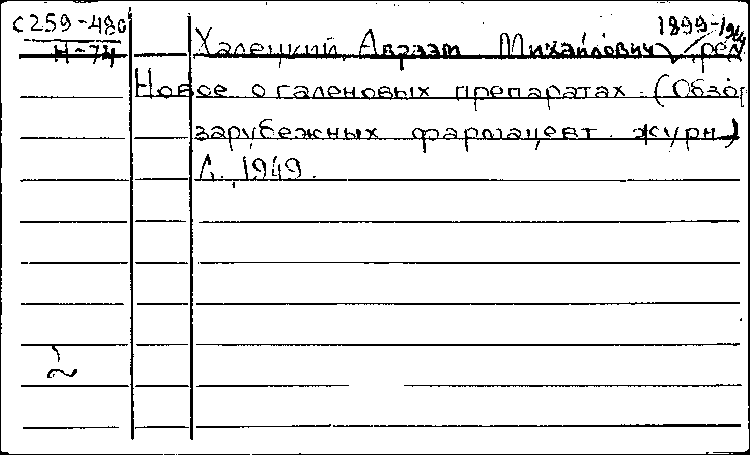 С259-480
Н-74
1899-
Халецкий, Авраам Михайлович, ред.
Новое о галеновых препаратах. (Обзор
зарубежных фармацевт. журн.)
Л., 1949.